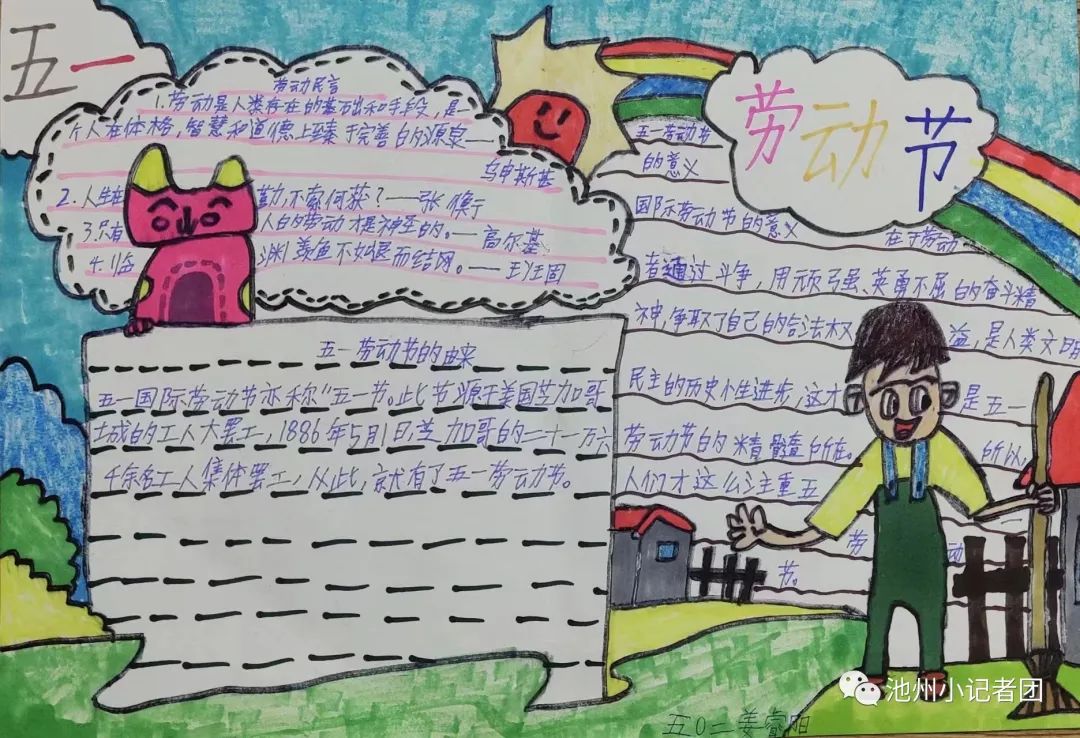 五一
劳动节
劳动民言
1.劳动是人类存在的基础和手段，是
个人在体格，智慧和道德上臻于完善的源泉——
乌申斯基
2.人生在勤，不索何获？——张衡
3.只有人的劳动才是神圣的。——高尔基
4.临渊羡鱼不如退而结网。——
五一劳动节的由来
五一国际劳动节亦称"五一节。此节源于美国芝加哥
城的工人大罢工，1886年5月1日，芝加哥的二十一万六
千余名工人集体罢工，从此，就有了五一劳动节。
五一劳动节
的意义
国际劳动节的意义在于劳动
者通过斗争，用顽强、英勇不屈的奋斗精
神，争取了自己的合法权益，是人类文明
民主的历史小生进步，这才是五一
劳动节的精髓所在。所以，
人们才这么注重五
劳动
节。
五0二姜睿阳
池州小记者团